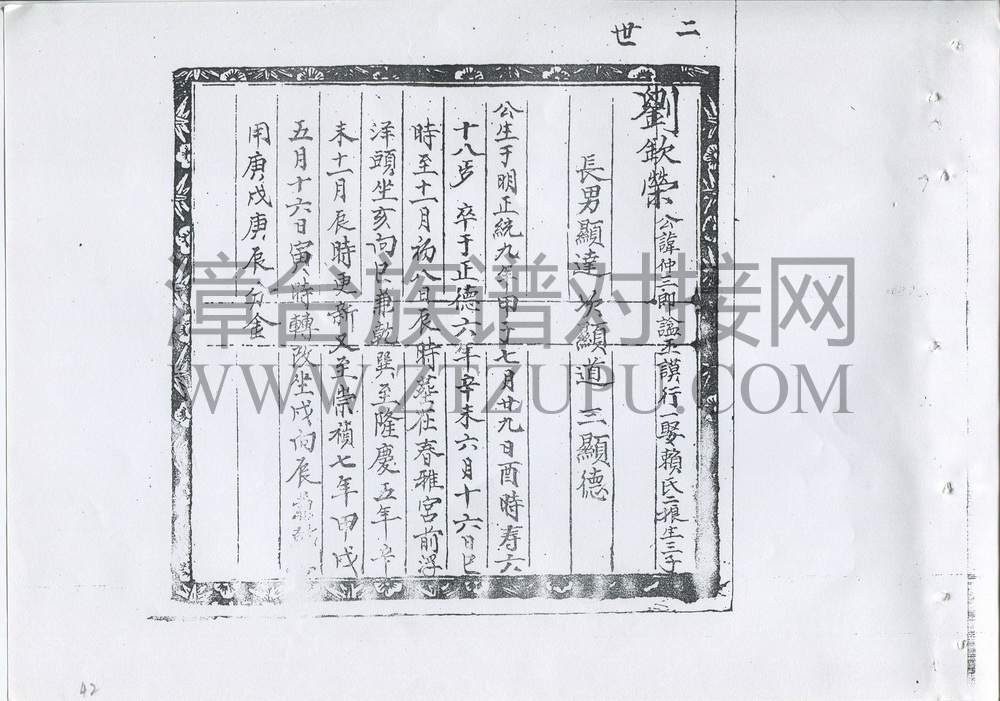 二世
劉欽榮 公諱仲三郎謚 謨行一娶賴氏二娘生三子
長男顯達 次顯道 三顯德
公生于明正統九年甲子七月廿九日酉時寿六
十八岁 卒于正德六年辛未六月十六日巳
時至十一月初八日辰時葬在春雅宮前浮
洋頭坐亥向巳兼乾巽至隆慶五年辛
未十一月辰時更新又至崇禎七年甲戌
五月十六日寅時轉改坐戌向辰兼
用庚戌庚辰分金
漳台族谱对接网
WWW.ZTZUPU.COM
42